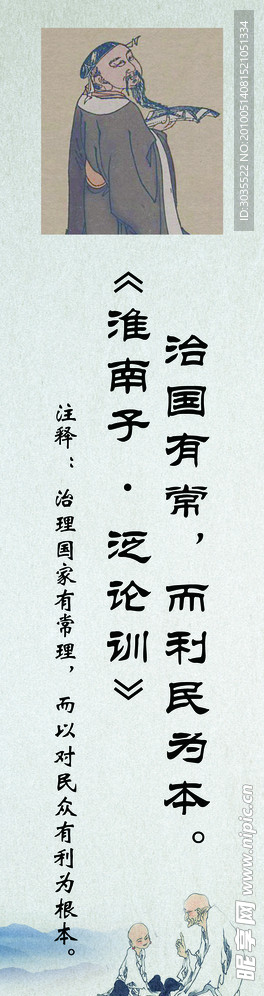 治国有常，而利民为本。
《淮南子·泛论训》
注释：治理国家有常理，而以对民众有利为根本。
ID:3035522 NO:20100514081521051334
昵享网 www.nipic.cn